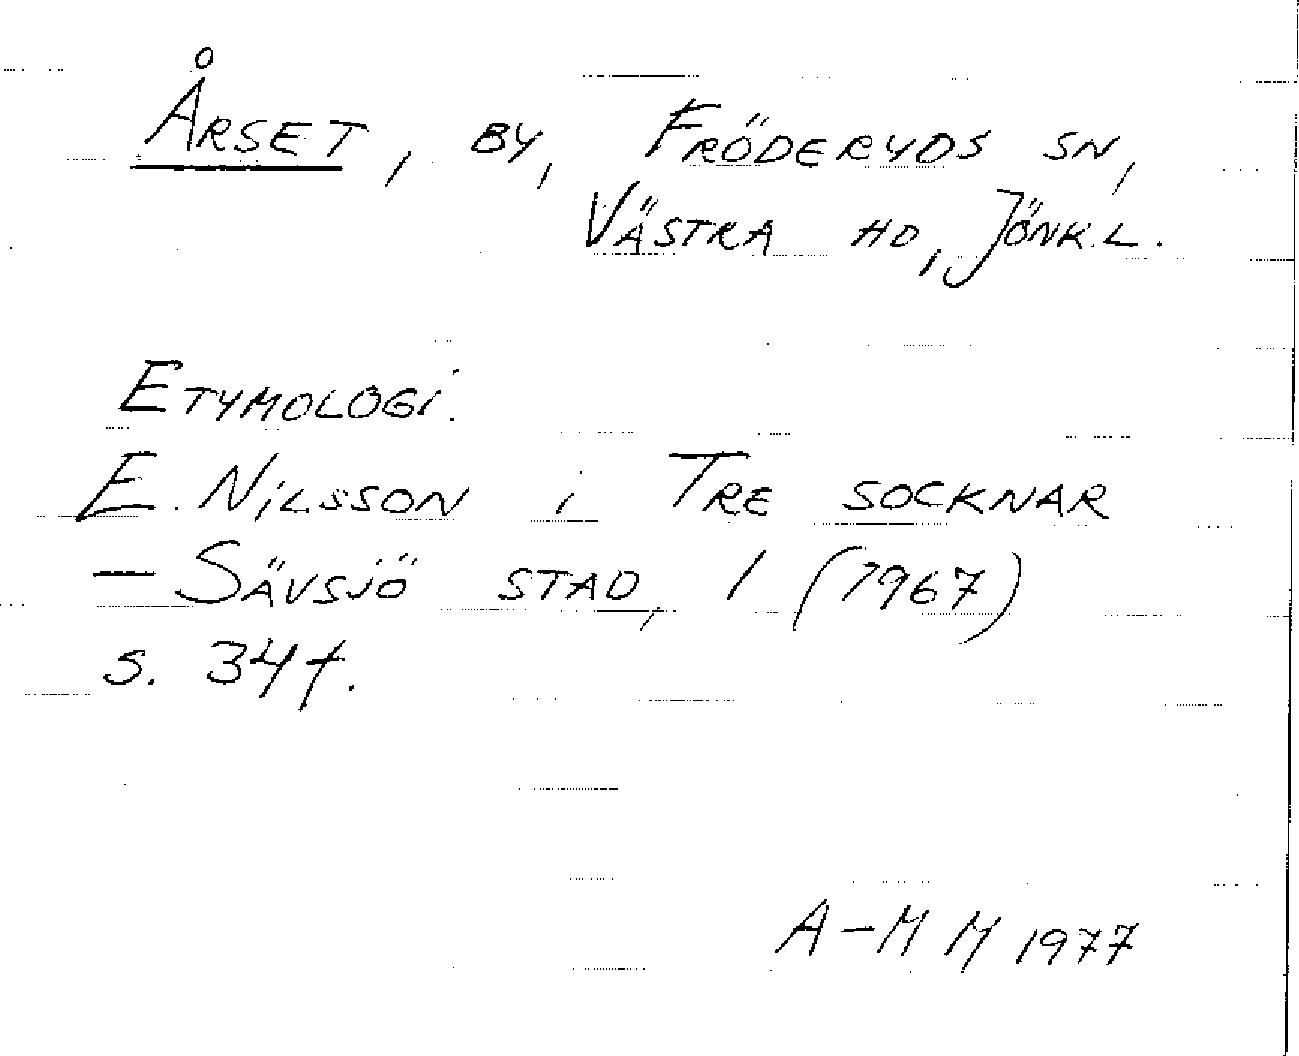 Årset, by, Fröderyds sn,
Västra hd, Jönk.l.
Etymologi.
E. Nilsson i Tre socknar
– Sävsjö stad, 1 (1967)
s. 34 f.
A-M M 1977